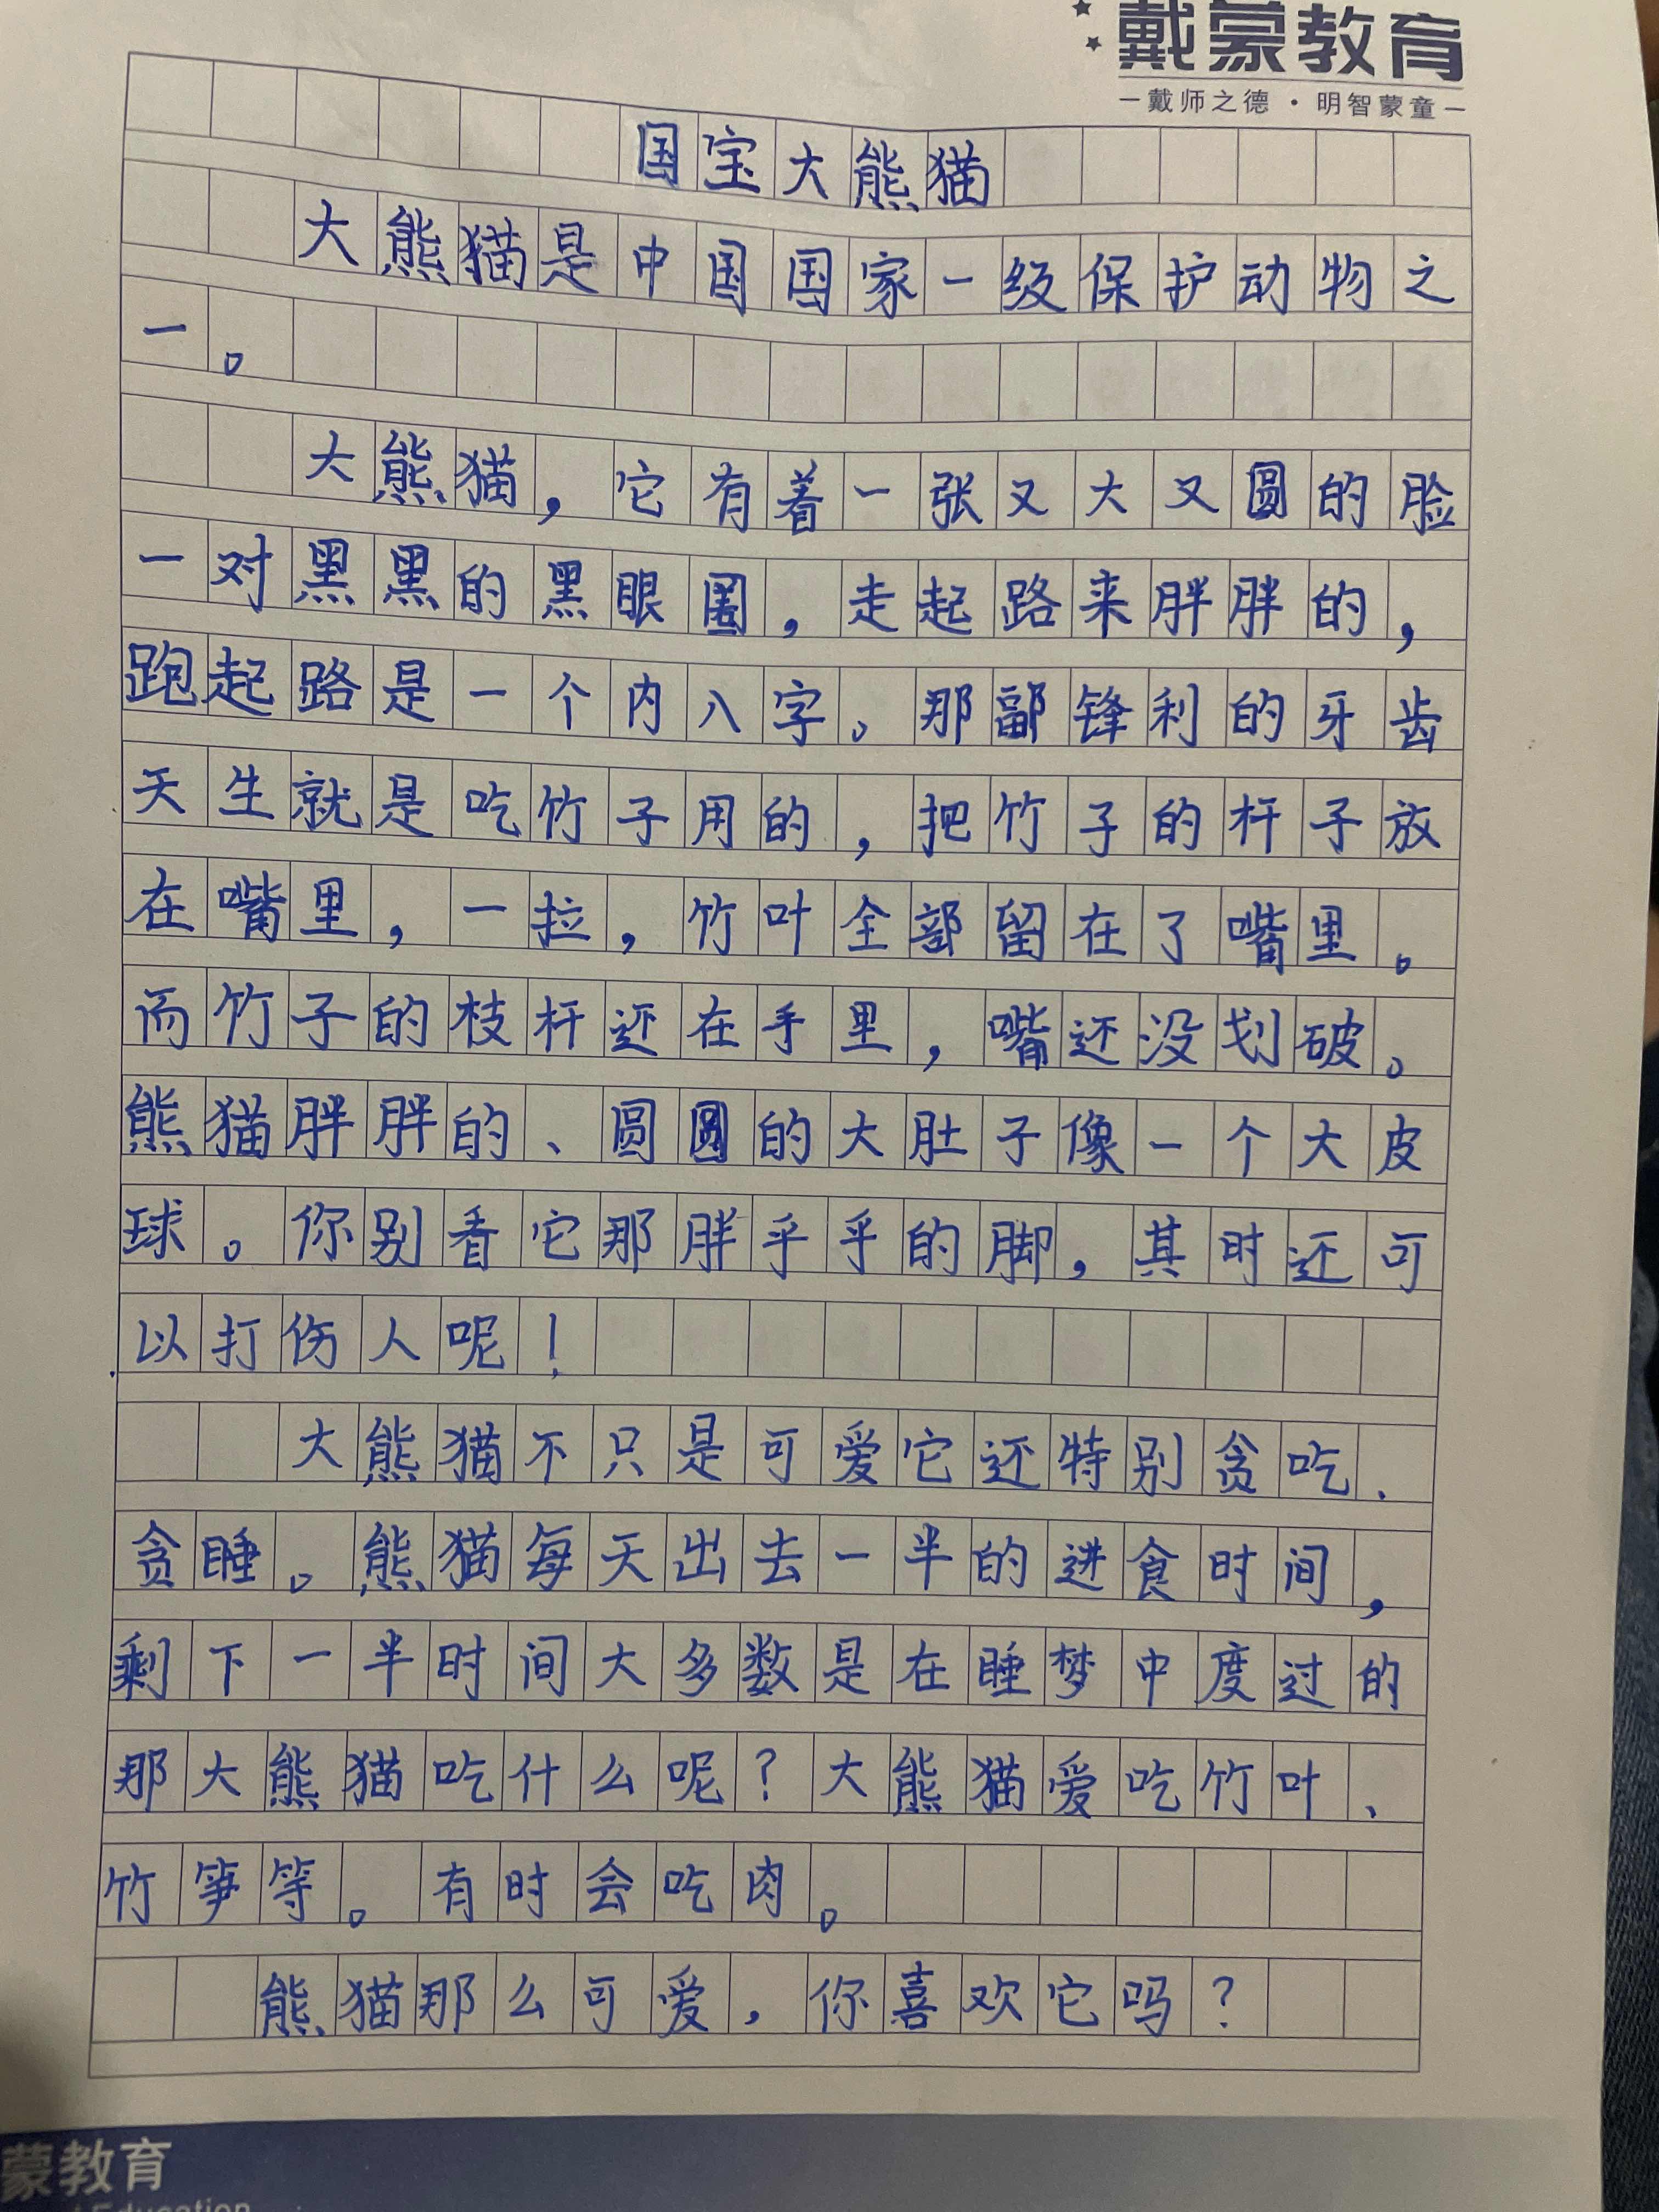 戴蒙教育
—戴师之德·明智蒙童—
国宝大熊猫
大熊猫是中国国家一级保护动物之
一。
大熊猫，它有着一张又大又圆的脸
一对黑黑的黑眼圈，走起路来胖胖的，
跑起路是一个内八字。那副锋利的牙齿
天生就是吃竹子用的，把竹子的杆子放
在嘴里，一拉，竹叶全部留在了嘴里。
而竹子的枝杆还在手里，嘴还没划破。
熊猫胖胖的、圆圆的大肚子像一个大皮
球。你别看它那胖乎乎的脚，其时还可
以打伤人呢！
大熊猫不只是可爱它还特别贪吃、
贪睡。熊猫每天出去一半的进食时间，
剩下一半时间大多数是在睡梦中度过的
那大熊猫吃什么呢？大熊猫爱吃竹叶、
竹笋等。有时会吃肉。
熊猫那么可爱，你喜欢它吗？
蒙教育
Education